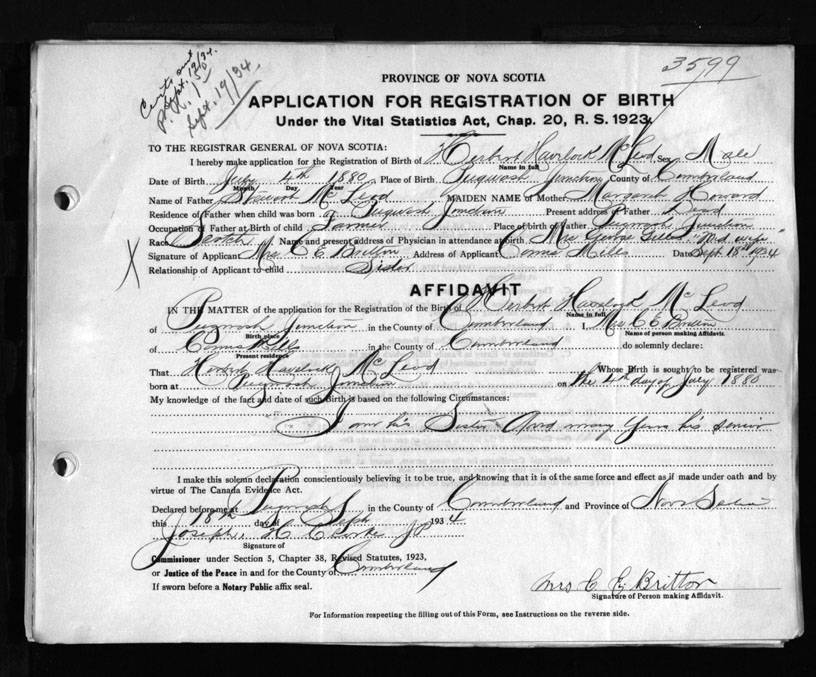 3599
Sept. 19/34.
Sept. 19/34.
PROVINCE OF NOVA SCOTIA
APPLICATION FOR REGISTRATION OF BIRTH
Under the Vital Statistics Act, Chap. 20, R. S. 1923.
TO THE REGISTRAR GENERAL OF NOVA SCOTIA:
I hereby make application for the Registration of Birth of Herbert Havelock McLeod Sex Male
Name in full
Date of Birth July 4th 1880 Place of Birth Pugwash Junction County of Cumberland
Month Day Year
Name of Father Stewart McLeod MAIDEN NAME of Mother Margaret Howard
Residence of Father when child was born at Pugwash Junction Present address of Father Dead
Occupation of Father at Birth of child Farmer Place of birth of Father Pugwash Junction
Race Scotch Name and present address of Physician in attendance at birth Mrs George Mid wife
Signature of Applicant Mrs. C E Britton Address of Applicant Mills Date Sept 18th 1934
Relationship of Applicant to child Sister
AFFIDAVIT
IN THE MATTER of the application for the Registration of the Birth of Herbert Havelock McLeod
Name in full
of Pugwash Junction in the County of Cumberland I, Mrs C E Britton
Birth place Name of person making Affidavit.
of Mills in the County of Cumberland do solemnly declare:
Present residence
That Herbert Havelock McLeod Whose Birth is sought to be registered was
born at Pugwash Junction on the 4th day of July 1880
My knowledge of the fact and date of such Birth is based on the following Circumstances:
I am his Sister and many years his senior
I make this solemn declaration conscientiously believing it to be true, and knowing that it is of the same force and effect as if made under oath and by
virtue of The Canada Evidence Act.
Declared before me at Pugwash in the County of Cumberland and Province of Nova Scotia
this 18th day of Sept 1934
Joseph. H Clarke JP
Signature of
Commissioner under Section 5, Chapter 38, Revised Statutes, 1923,
or Justice of the Peace in and for the County of Cumberland
If sworn before a Notary Public affix seal.
Mrs C E Britton
Signature of Person making Affidavit.
For Information respecting the filling out of this Form, see Instructions on the reverse side.